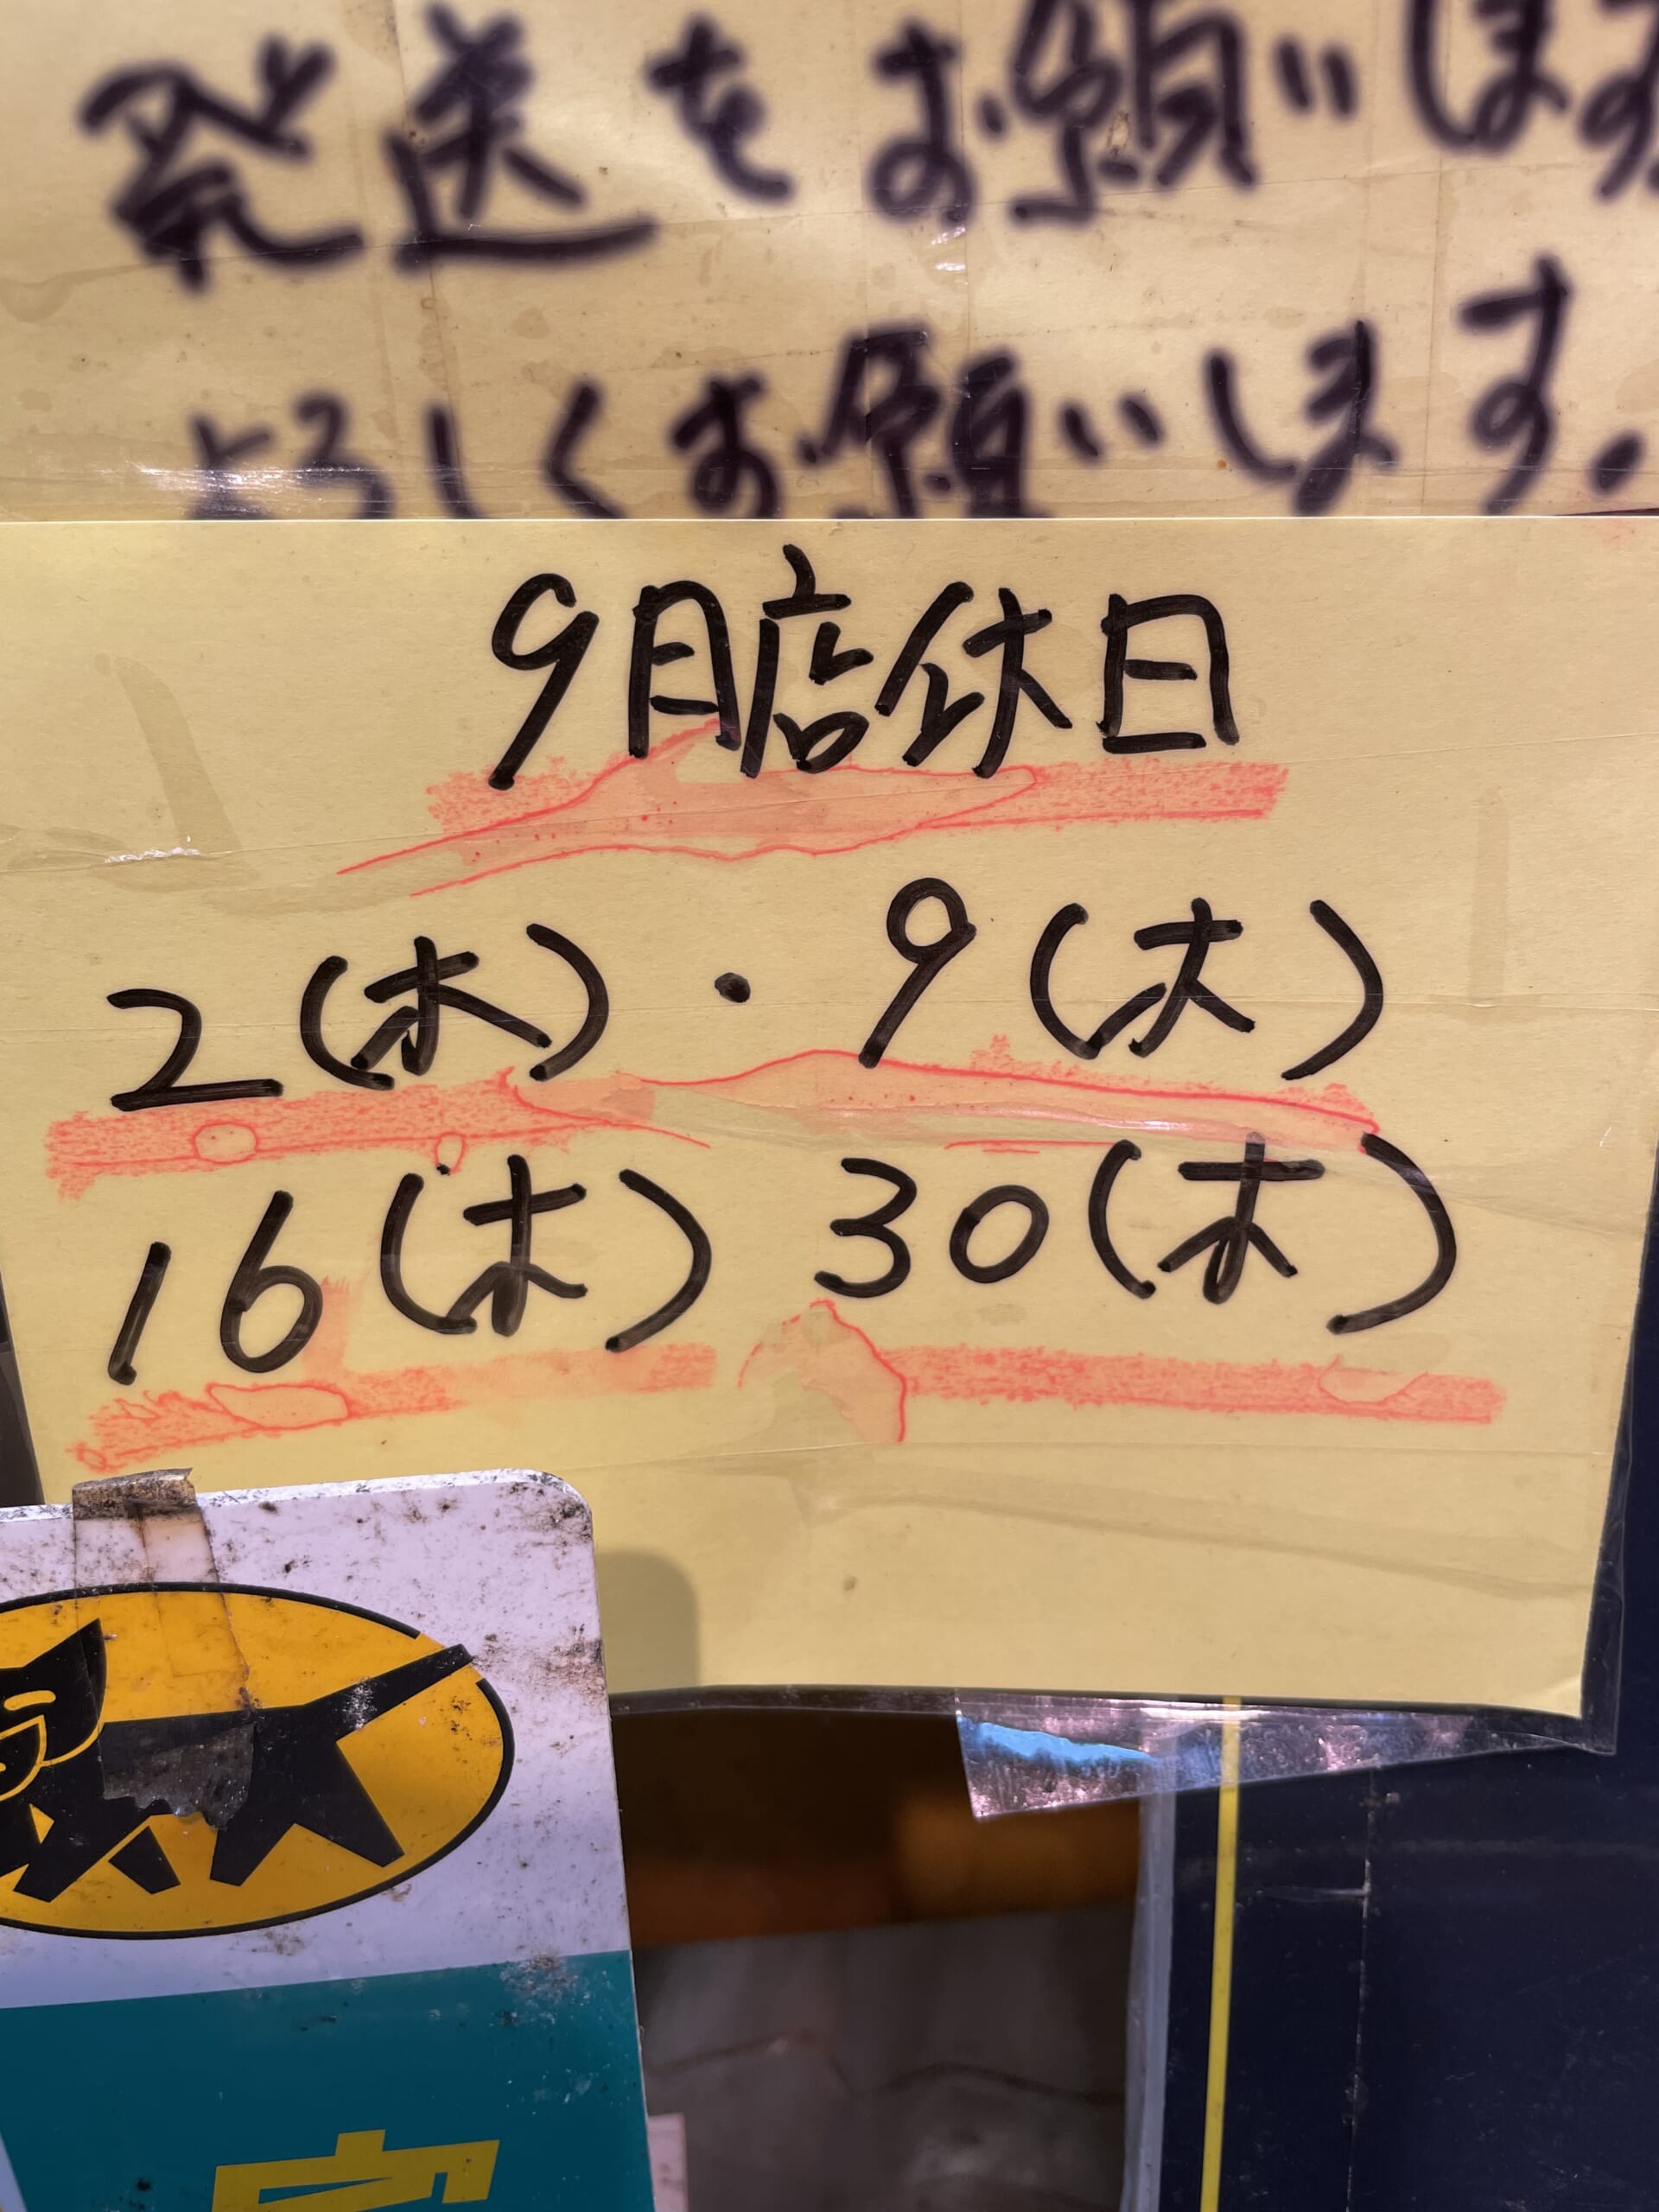 発送をお願いします
よろしくお願いします.
9月店休日
2(木)・9(木)
16(木) 30(木)